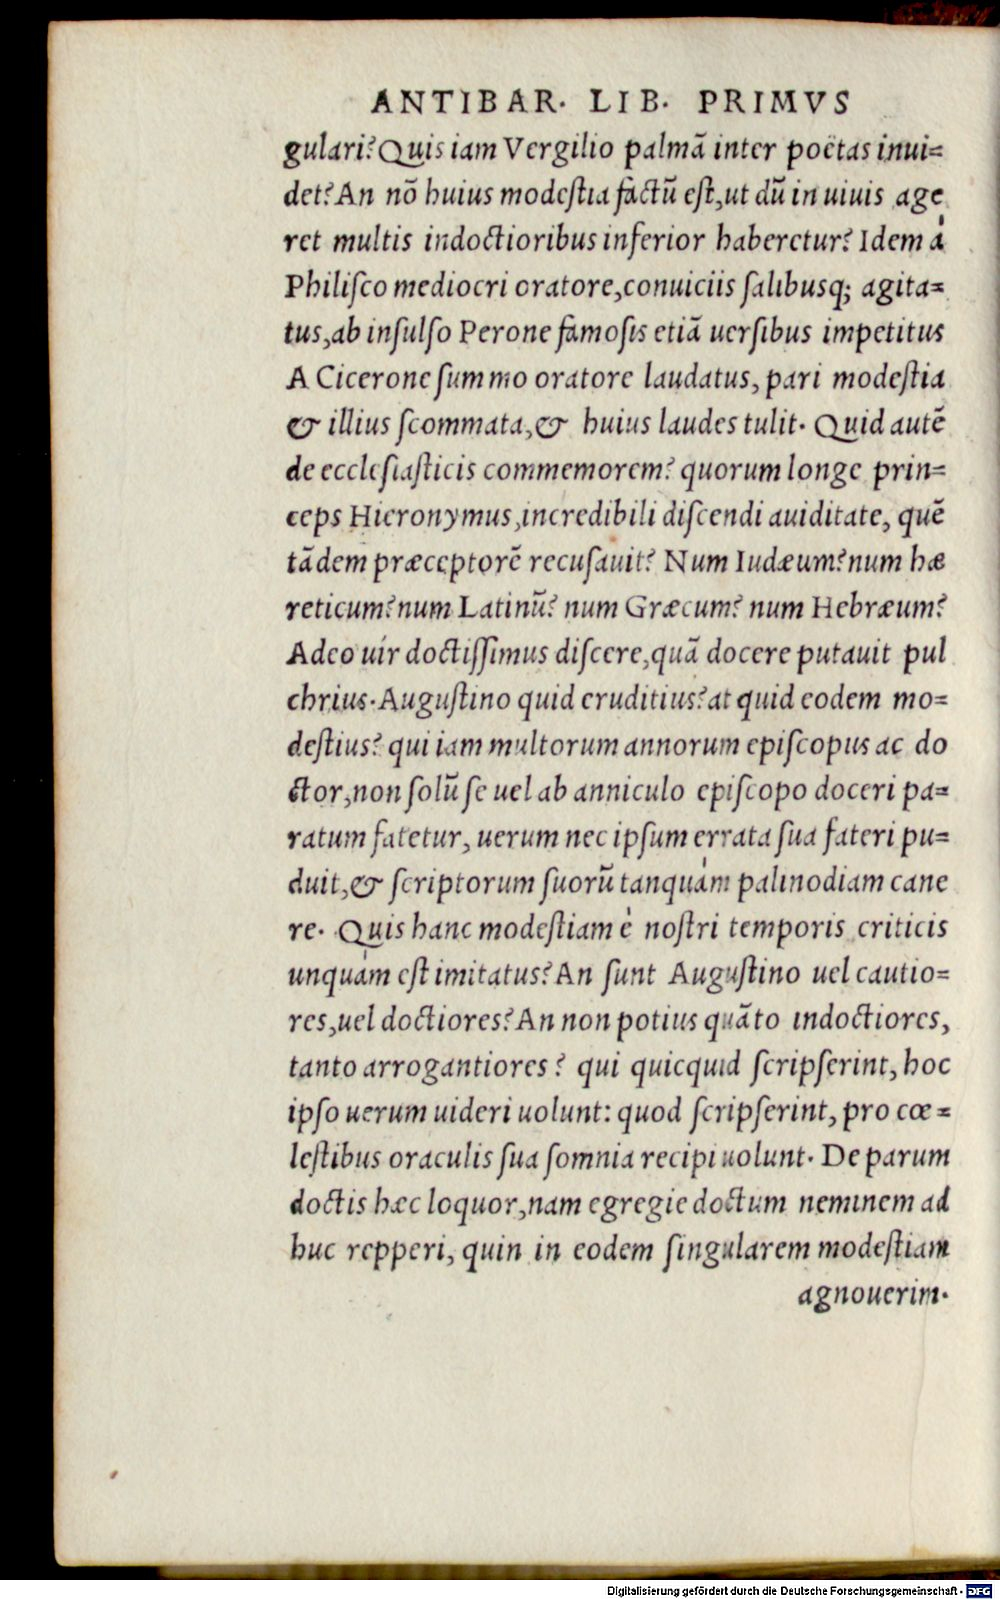 ANTIBAR. LIB. PRIMVS
gulari? Quis iam Vergilio palmā inter poëtas inui=
det? An nō huius modeſtia factū eſt, ut dū in uiuis age
ret multis indoctioribus inferior haberetur? Idem á
Philiſco mediocri oratore, conuiciis ſalibusq; agita=
tus, ab inſulſo Perone famoſis etiā uerſibus impetitus
A Cicerone ſummo oratore laudatus, pari modeſtia
& illius ſcommata, & huius laudes tulit. Quid autē
de eccleſiaſticis commemorem? quorum longe prin=
ceps Hieronymus, incredibili diſcendi auiditate, quē
tādem præceptorē recuſauit? Num Iudæum? num hæ
reticum? num Latinū? num Græcum? num Hebræum?
Adeo uir doctiſſimus diſcere, quā docere putauit pul
chrius. Auguſtino quid eruditius? at quid eodem mo=
deſtius? qui iam multorum annorum epiſcopus ac do
ctor, non ſolū ſe uel ab anniculo epiſcopo doceri pa=
ratum fatetur, uerum nec ipſum errata ſua fateri pu=
duit, & ſcriptorum ſuorū tanquám palinodiam cane
re. Quis hanc modeſtiam è noſtri temporis criticis
unquám eſt imitatus? An ſunt Auguſtino uel cautio=
res, uel doctiores? An non potius quāto indoctiores,
tanto arrogantiores? qui quicquid ſcripſerint, hoc
ipſo uerum uideri uolunt: quod ſcripſerint, pro cœ=
leſtibus oraculis ſua ſomnia recipi uolunt. De parum
doctis hæc loquor, nam egregie doctum neminem ad
huc repperi, quin in eodem ſingularem modeſtiam
agnouerim.
Digitalisierung gefördert durch die Deutsche Forschungsgemeinschaft - DFG